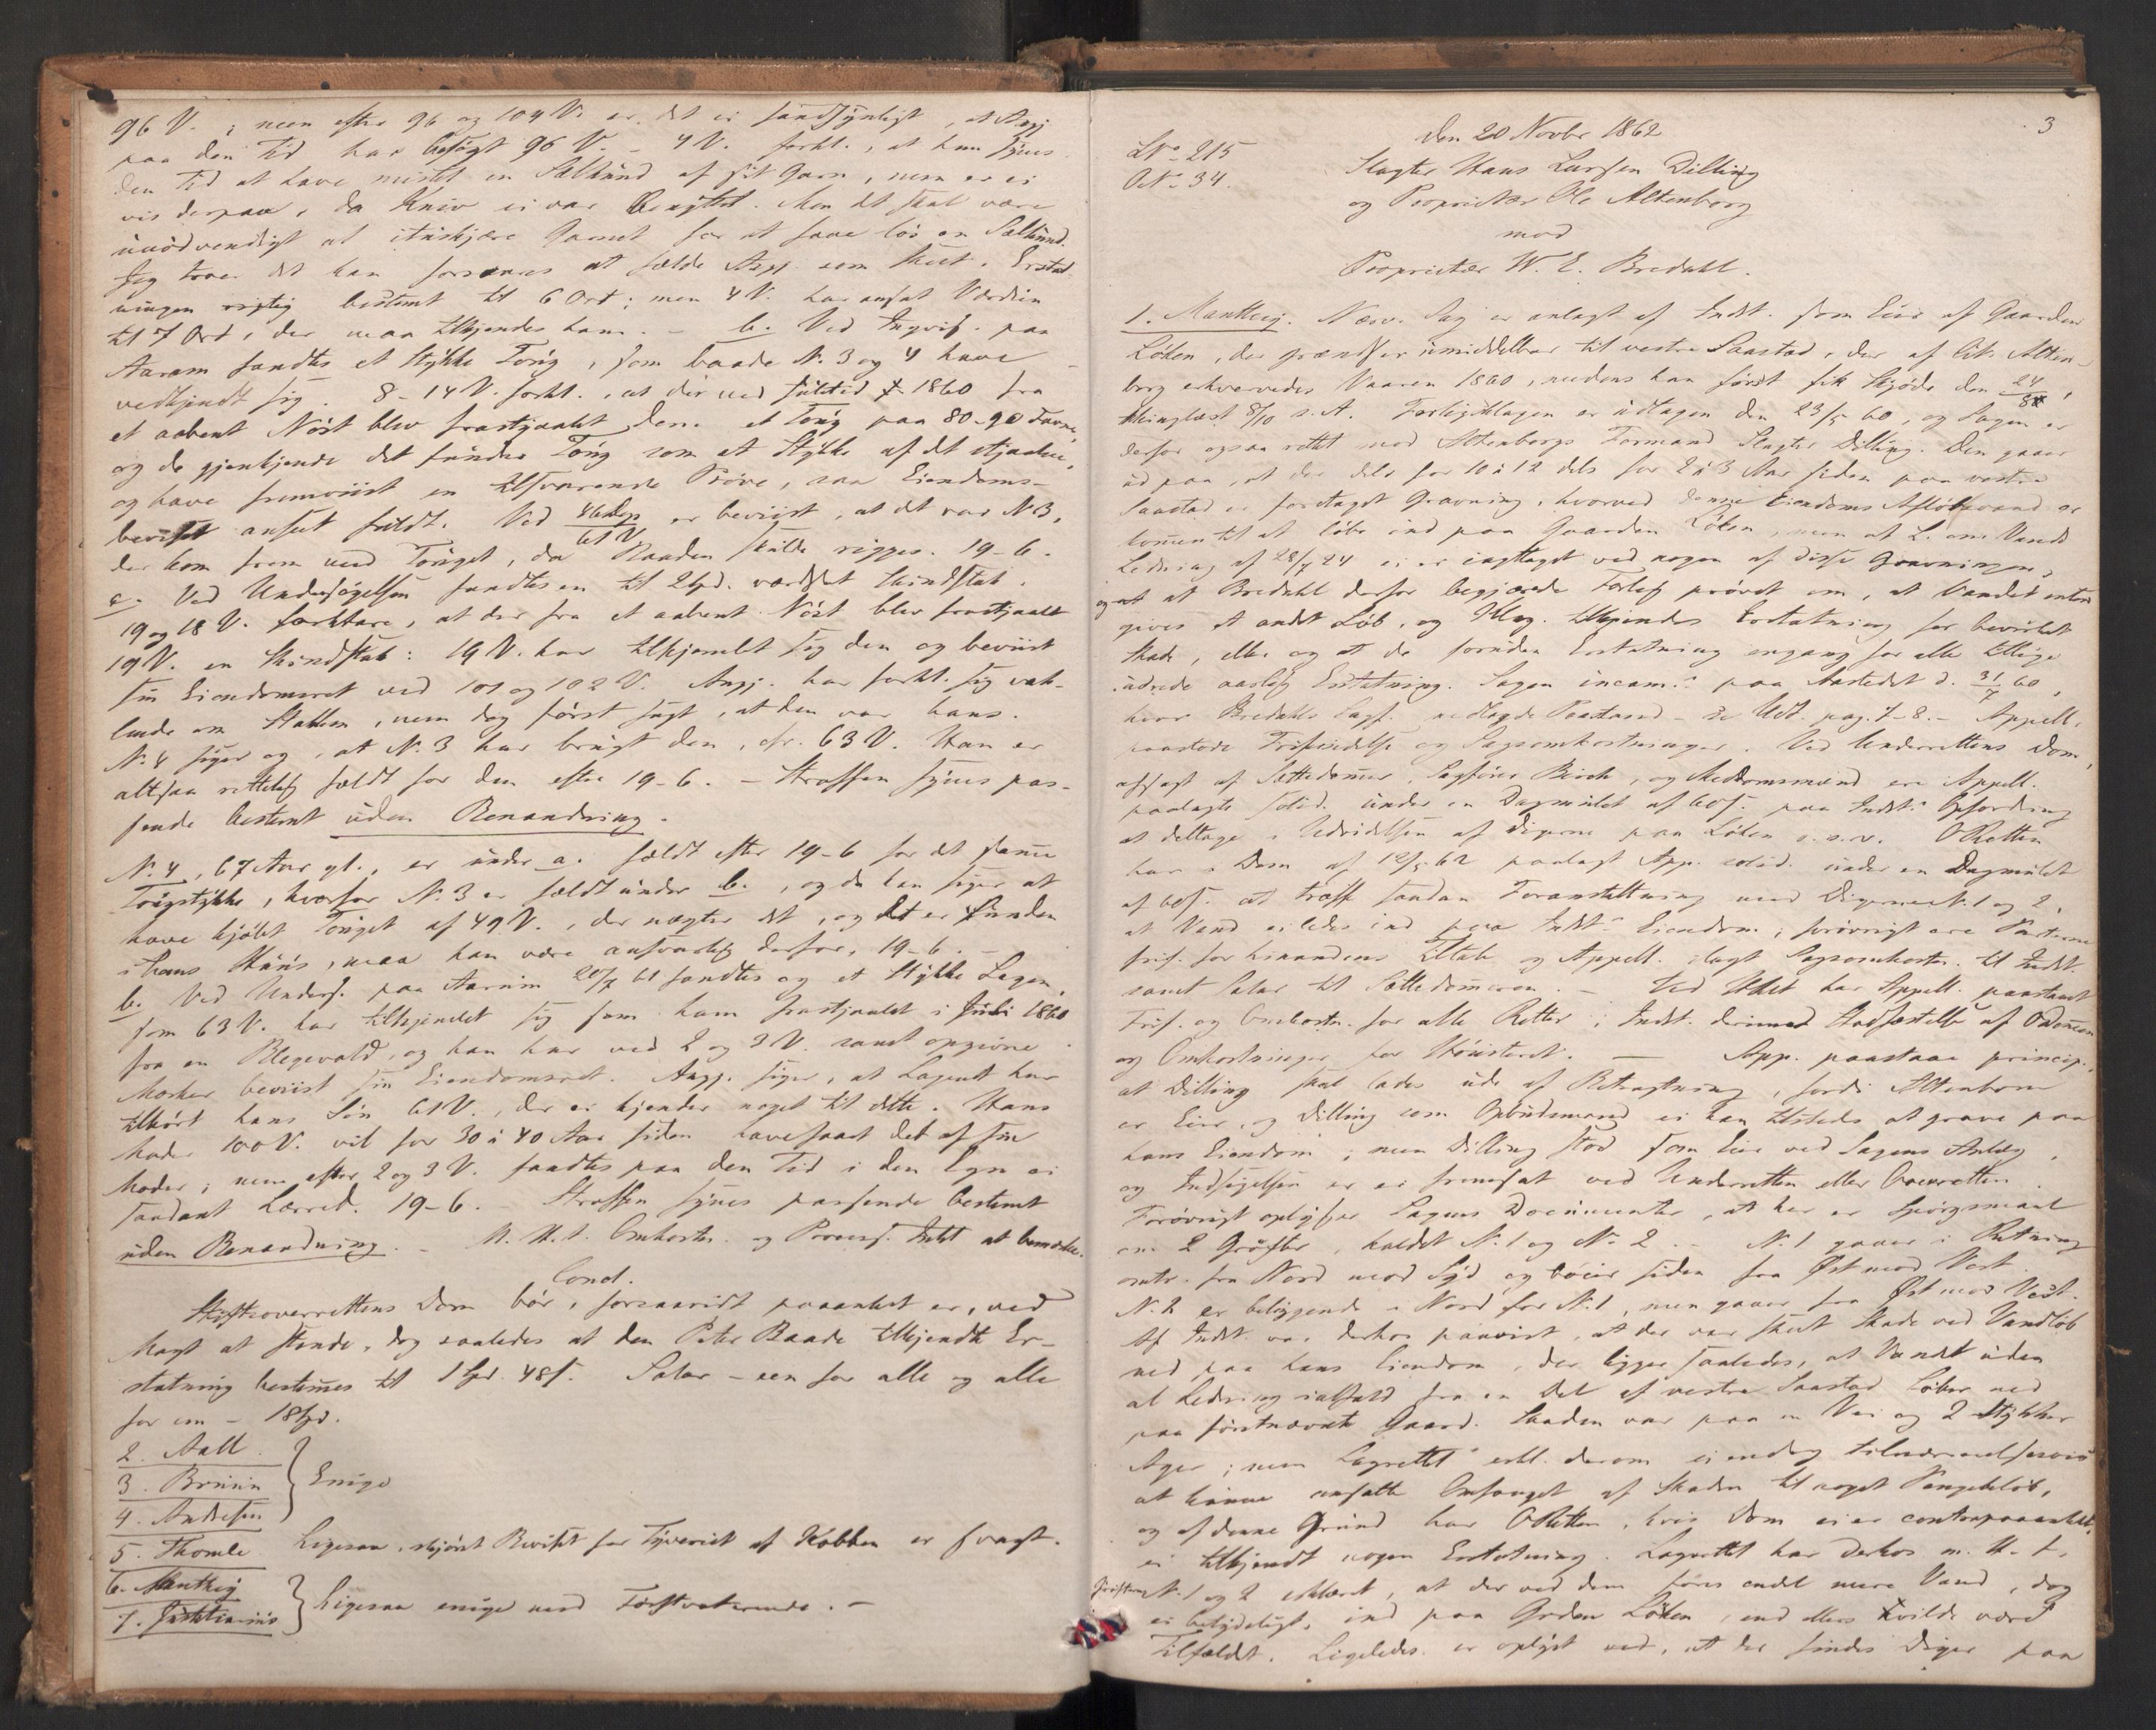 96 V. ; men efter 96 og 104 V. er det ei sandsynligt, at Angj
paa den Tid har besøgt 96 V. – 4 V. forkl., at han synes
den Tid at have mistet en Sælhund af sit Garn, men er ei
vis derpaa, da Kniv ei var benyttet. Men det skal være
unødvendigt at ituskjære Garnet for at faae løs en Sælhund.
Jeg troer det kan forsvares at fælde Angj som skeet. Erstat-
ningen rigtig bestemt til 6 Ort; men 4 V. har ansat Værdien
til 7 Ort, der maa tilkjendes ham. – b. Ved Inqvis. paa
Aaram fandtes et Stykke Toug, som baade N. 3 og 4 have
vedkjendt sig. 8 – 14 V. forkl., at der ved Juletid 1860 fra
et aabent Nøst blev frastjaalet dem et Toug paa 80-90 Favne,
og de gjenkjende det fundne Toug som et Stykke af det stjaalne,
og have fremviist en tilsvarende Prøve, saa Eiendoms-
beviset anseet fuldt. Ved er beviist, at det var N 3,
der kom frem med Touget, da Baaden skulde rigges. 19-6.
c. Ved Undersøgelsen fandtes en til 2 Spd. værdsat Skindstak.
19 og 18 V. forklare, at der fra et aabent Nøst blev frastjaalet
19 V. en Skindstak: 19 V. har tilkjendt sig den og beviist
sin Eiendomsret ved 101 og 102 V. Angj. har forkl. sig vak-
lende om Stakken, men dog først sagt, at den var hans.
N. 4 siger og, at N. 3 har brugt den, cfr. 63 V. Han er
altsaa rettelig fældt for den efter 19-6. – Straffen synes pas-
sende bestemt uden Benaadning.
N. 4, 67 Aar gl., er under a. fældt efter 19-6 for det samme
Tougstykke, hvorfor N. 3 er fældt under b., og da han siger at
have kjøbt Touget af 49 V., der nægter det, og det er funden
i hans Huus, maa han være ansvarlig derfor, 19-6. –
b. Ved Unders. paa Aarum 20/7 61 fandtes og et Stykke Lagen,
som 63 V. har tilkjendet sig som ham frastjaalet i Juli 1860
fra en Blegevold, og han har ved 2 og 3 V. samt opgivne
Mærker beviist sin Eiendomsret. Angj. siger, at Lagenet har
tilhørt hans Søn 61 V., der ei kjender noget til dette. Hans
Moder 100 V. vil for 30 à 40 Aar siden have faaet det af sin
Moder; men efter 2 og 3 V. fandtes paa den Tid i den Egn ei
saadant Lærred. 19-6. – Straffen synes passende bestemt
uden Benaadning. – M. H. t. Omkostn. og Process. Intet at bemærke.
Concl.
Stiftsoverrettens Dom bør, forsaavidt paaanket er, ved
Magt at stande, dog saaledes at den Peter Baade tilkjendte Er-
statning bestemmes til 1 Spd. 48 s. Salar – een for alle og alle
for een – 18 Spd.
2. Aall
3. Bruun
4. Andresen
Enige
5. Thomle Ligesaa, skjønt Beviset for Tyveriet af Kobben er svagt.
6. Manthey
7. Justitiarius
Ligesaa enige med Førstvoterende. –
3
Den 20 Novbr 1862
LN° 215
ON° 34.
Slagter Hans Larsen Dilling
og Proprietær Ole Altenborg
mod
Proprietær W. E. Bredahl.
1. Manthey. Nærv. Sag er anlagt af Indst. som Eier af Gaarden
Løken, der grændser umiddelbar til vestre Saastad, der af Cit. Alten-
borg erhvervedes Vaaren 1860, medens han først fik Skjøde den 24/8,
thinglæst 8/10 s. A. Forligsklagen er udtagen den 23/5 60, og Sagen er
derfor ogsaa rettet mod Altenborgs Formand Slagter Dilling. Den gaaer
ud paa, at der dels for 10 à 12 dels for 2 à 3 Aar siden paa vestre
Saastad er foretaget Gravning, hvorved denne Eiendoms Afløbsvand er
kommen til at løbe ind paa Gaarden Løken, men at L. om Vands
Ledning af 28/7 24 ei er iagttaget ved nogen af disse Gravninger,
og at Bredahl derfor begjærede Forlig prøvet om, at Vandet enten
gives et andet Løb, og Klag. tilkjendes Erstatning for bevirket
Skade, eller og at de foruden Erstatning engang for alle tillige
udrede aarlig Erstatning. Sagen incam.s paa Aastedet d. 31/7 60,
hvor Bredahls Sagf. nedlagde Paastand – se Udt. pag. 7-8. – Appell.
paastode Frifindelse og Sagsomkostninger. Ved Underrettens Dom,
afsagt af Sættedommer, Sagfører Birch, og Meddomsmænd ere Appell.
paalagte solid. under en Dagmulct af 60 s. paa Indst.s Opfordring
at deltage i Udvidelsen af Digerne paa Løken o. s. v. ORetten
har i Dom af 12/5 62 paalagt App. solid. under en Dagmulct
af 60 s. at træffe saadan Foranstaltning med Digerne N. 1 og 2,
at Vand ei ledes ind paa Indst.s Eiendom; forøvrigt ere Parterne
frif. for hinandens Tiltale og Appell. ilagt Sagsomkostn. til Indst.
samt Salar til Sættedommeren. – Ved HRet har Appell. paastaaet
Frif. og Omkostn. for alle Retter; Indst. derimod Stadfæstelse af ODommen
og Omkostninger for Høiesteret. — App. paastaae princip.,
at Dilling skal lades ude af Betragtning, fordi Altenborg
er Eier, og Dilling som Opbudsmand ei kan tilstedes at grave paa
hans Eiendom; men Dilling stod som Eier ved Sagens Anlæg,
og Indsigelsen er ei fremsat ved Underretten eller Overretten.
Forøvrigt oplyser Sagens Documenter, at her er Spørgsmaal
om 2 Grøfter, kaldet N. 1 og N. 2. – N. 1 gaaer i Retning
omtr. fra Nord mod Syd og bøier siden fra Øst mod Vest.
N. 2 er beliggende i Nord for N. 1, men gaaer fra Øst mod Vest.
Af Indst. var derhos paavist, at der var skeet Skade ved Vandløb
ned paa hans Eiendom, der ligger saaledes, at Vandet uden
al Ledning ialfald fra en Del af vestre Saastad løber ned
paa førstnævnte Gaard. Skaden var paa en Vei og 2 Stykker
Ager; men Lagrettet erkl. derom ei endog tilnærmelsesvis
at kunne ansætte Omfanget af Skaden til noget Pengebeløb,
og af denne Grund har ORetten, hvis Dom ei er contrapaaanket,
ei tilkjendt nogen Erstatning. Lagrettet har derhos m. H. t.
Grøfterne N. 1 og 2 erklæret, at der ved dem føres endel mere Vand, dog
ei betydeligt, ind paa Grden Løken, end ellers vilde være
Tilfældet. Ligeledes er oplyst ved, at der findes Diger paa